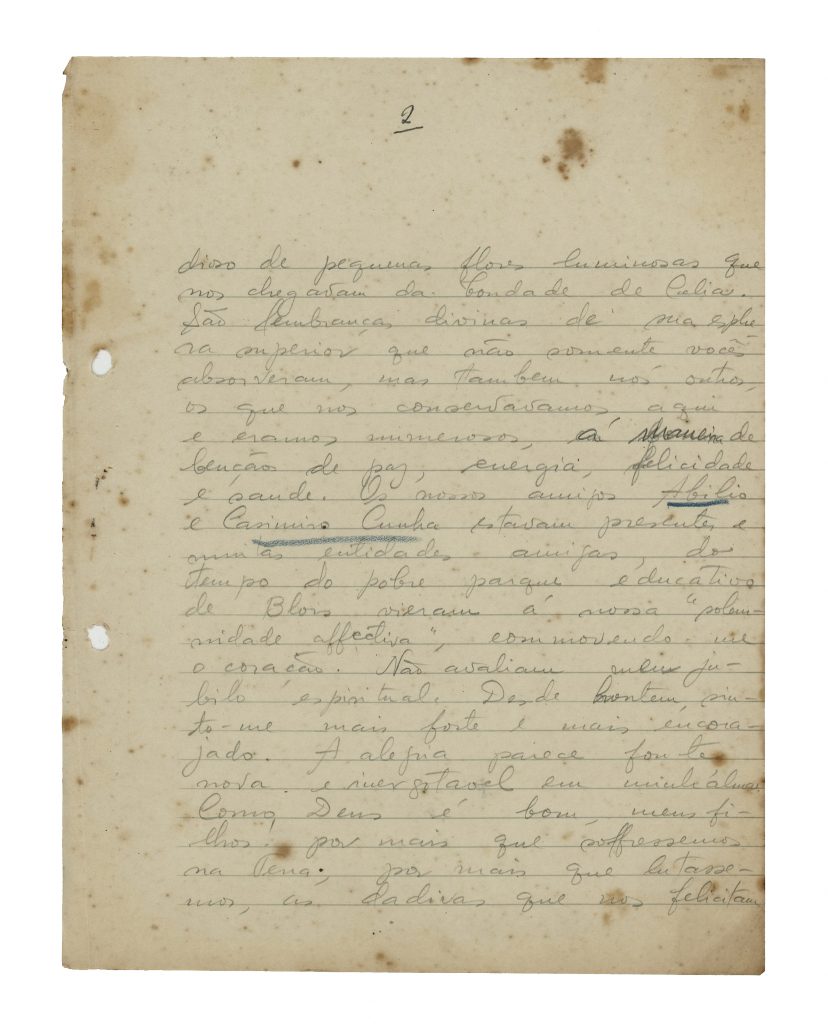 2
dioso de pequenas flores luminosas que
nos chegavam da bondade de Celia.
São lembranças divinas de sua esphe
ra superior que não somente vocês
absorveram, mas tambem nós outros,
os que nos conservavamos aqui
e eramos numerosos, á maneira de
benção de paz, energia, felicidade
e saude. Os nossos amigos Abilio
e Casimiro Cunha estavam presentes e
muitas entidades amigas, do
tempo do pobre parque educativo
de Blois vieram á nossa "solem-
nidade affectiva", commovendo-me
o coração. Não avaliam meu ju-
bilo espiritual. Desde hontem, sin-
to-me mais forte e mais encora-
jado. A alegria parece fonte
nova e inesgotavel em minh'alma.
Como Deus é bom, meus fi-
lhos por mais que soffressemos
na Terra, por mais que lutasse-
mos, as dadivas que nos felicitam